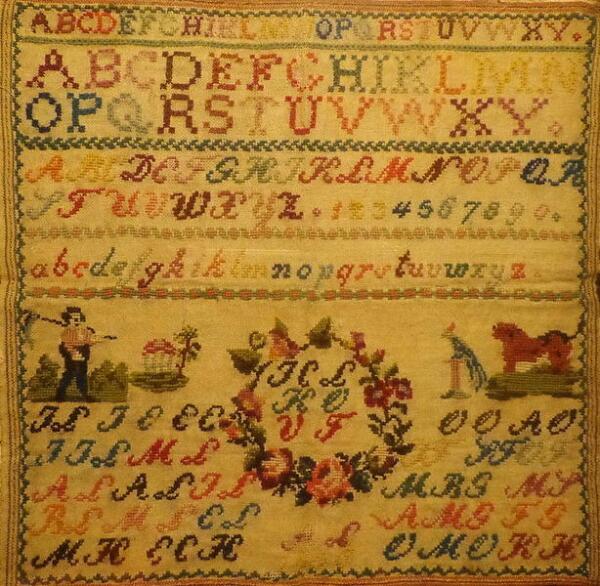 ABCDEFGHIKLMNOPQRSTUVWXY.
ABCDEFGHIKLMN
OPQRSTUVWXY.
ABCDEFGHIKLMNOPQR
STUVWXYZ.1234567890.
abcdefghiklmnopqrstuvwxyz.
HO
VT
OOAO
ML
ALALIL
MBG
AMG FG
RL ML EL
MH ECH
OMO HH